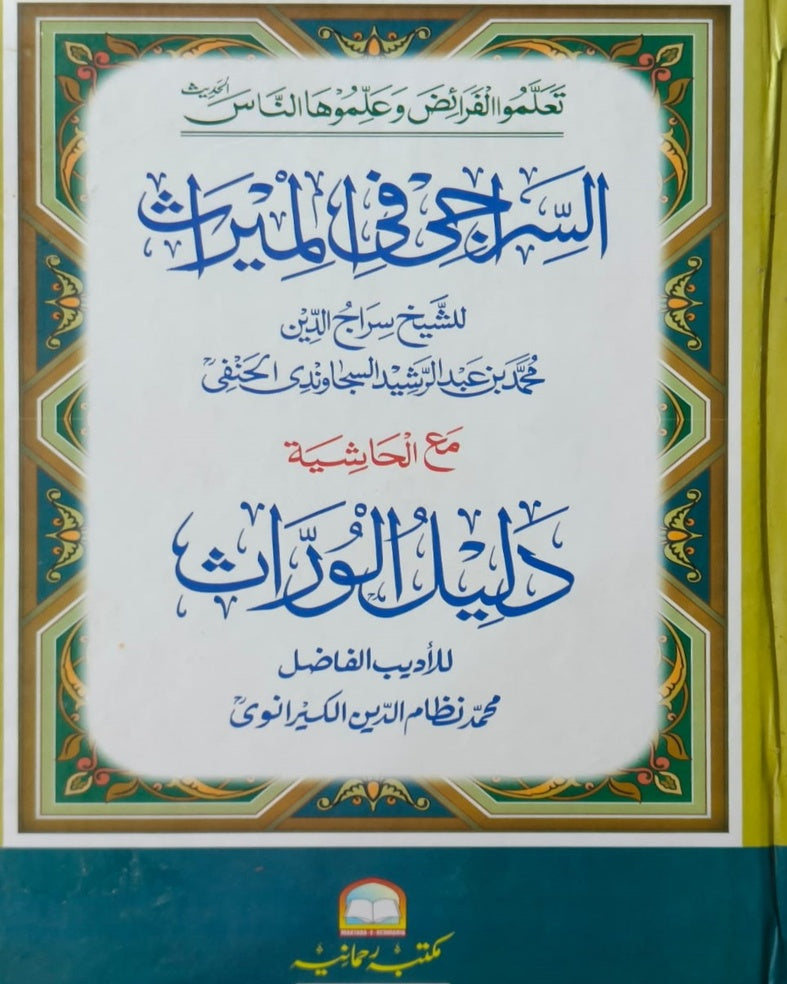 تَعَلَّمُوا الْفَرَائِضَ وَعَلِّمُوْهَا النَّاسَ الحدیث
السِّرَاجِیْ فِی الْمِیْرَاثِ
للشَّیْخ سِرَاجُ الدِّیْن
مُحَمَّد بْن عَبْد الرَّشِیْد السجاوندی الحَنَفِیؒ
مَعَ الْحَاشِیَة
دَلِیْلُ الْوُرَّاثِ
للأدیب الفاضل
محمّد نظام الدّین الکیرانویؒ
MAKTABA-E-REHMANIA
مکتبہ رحمانیہ